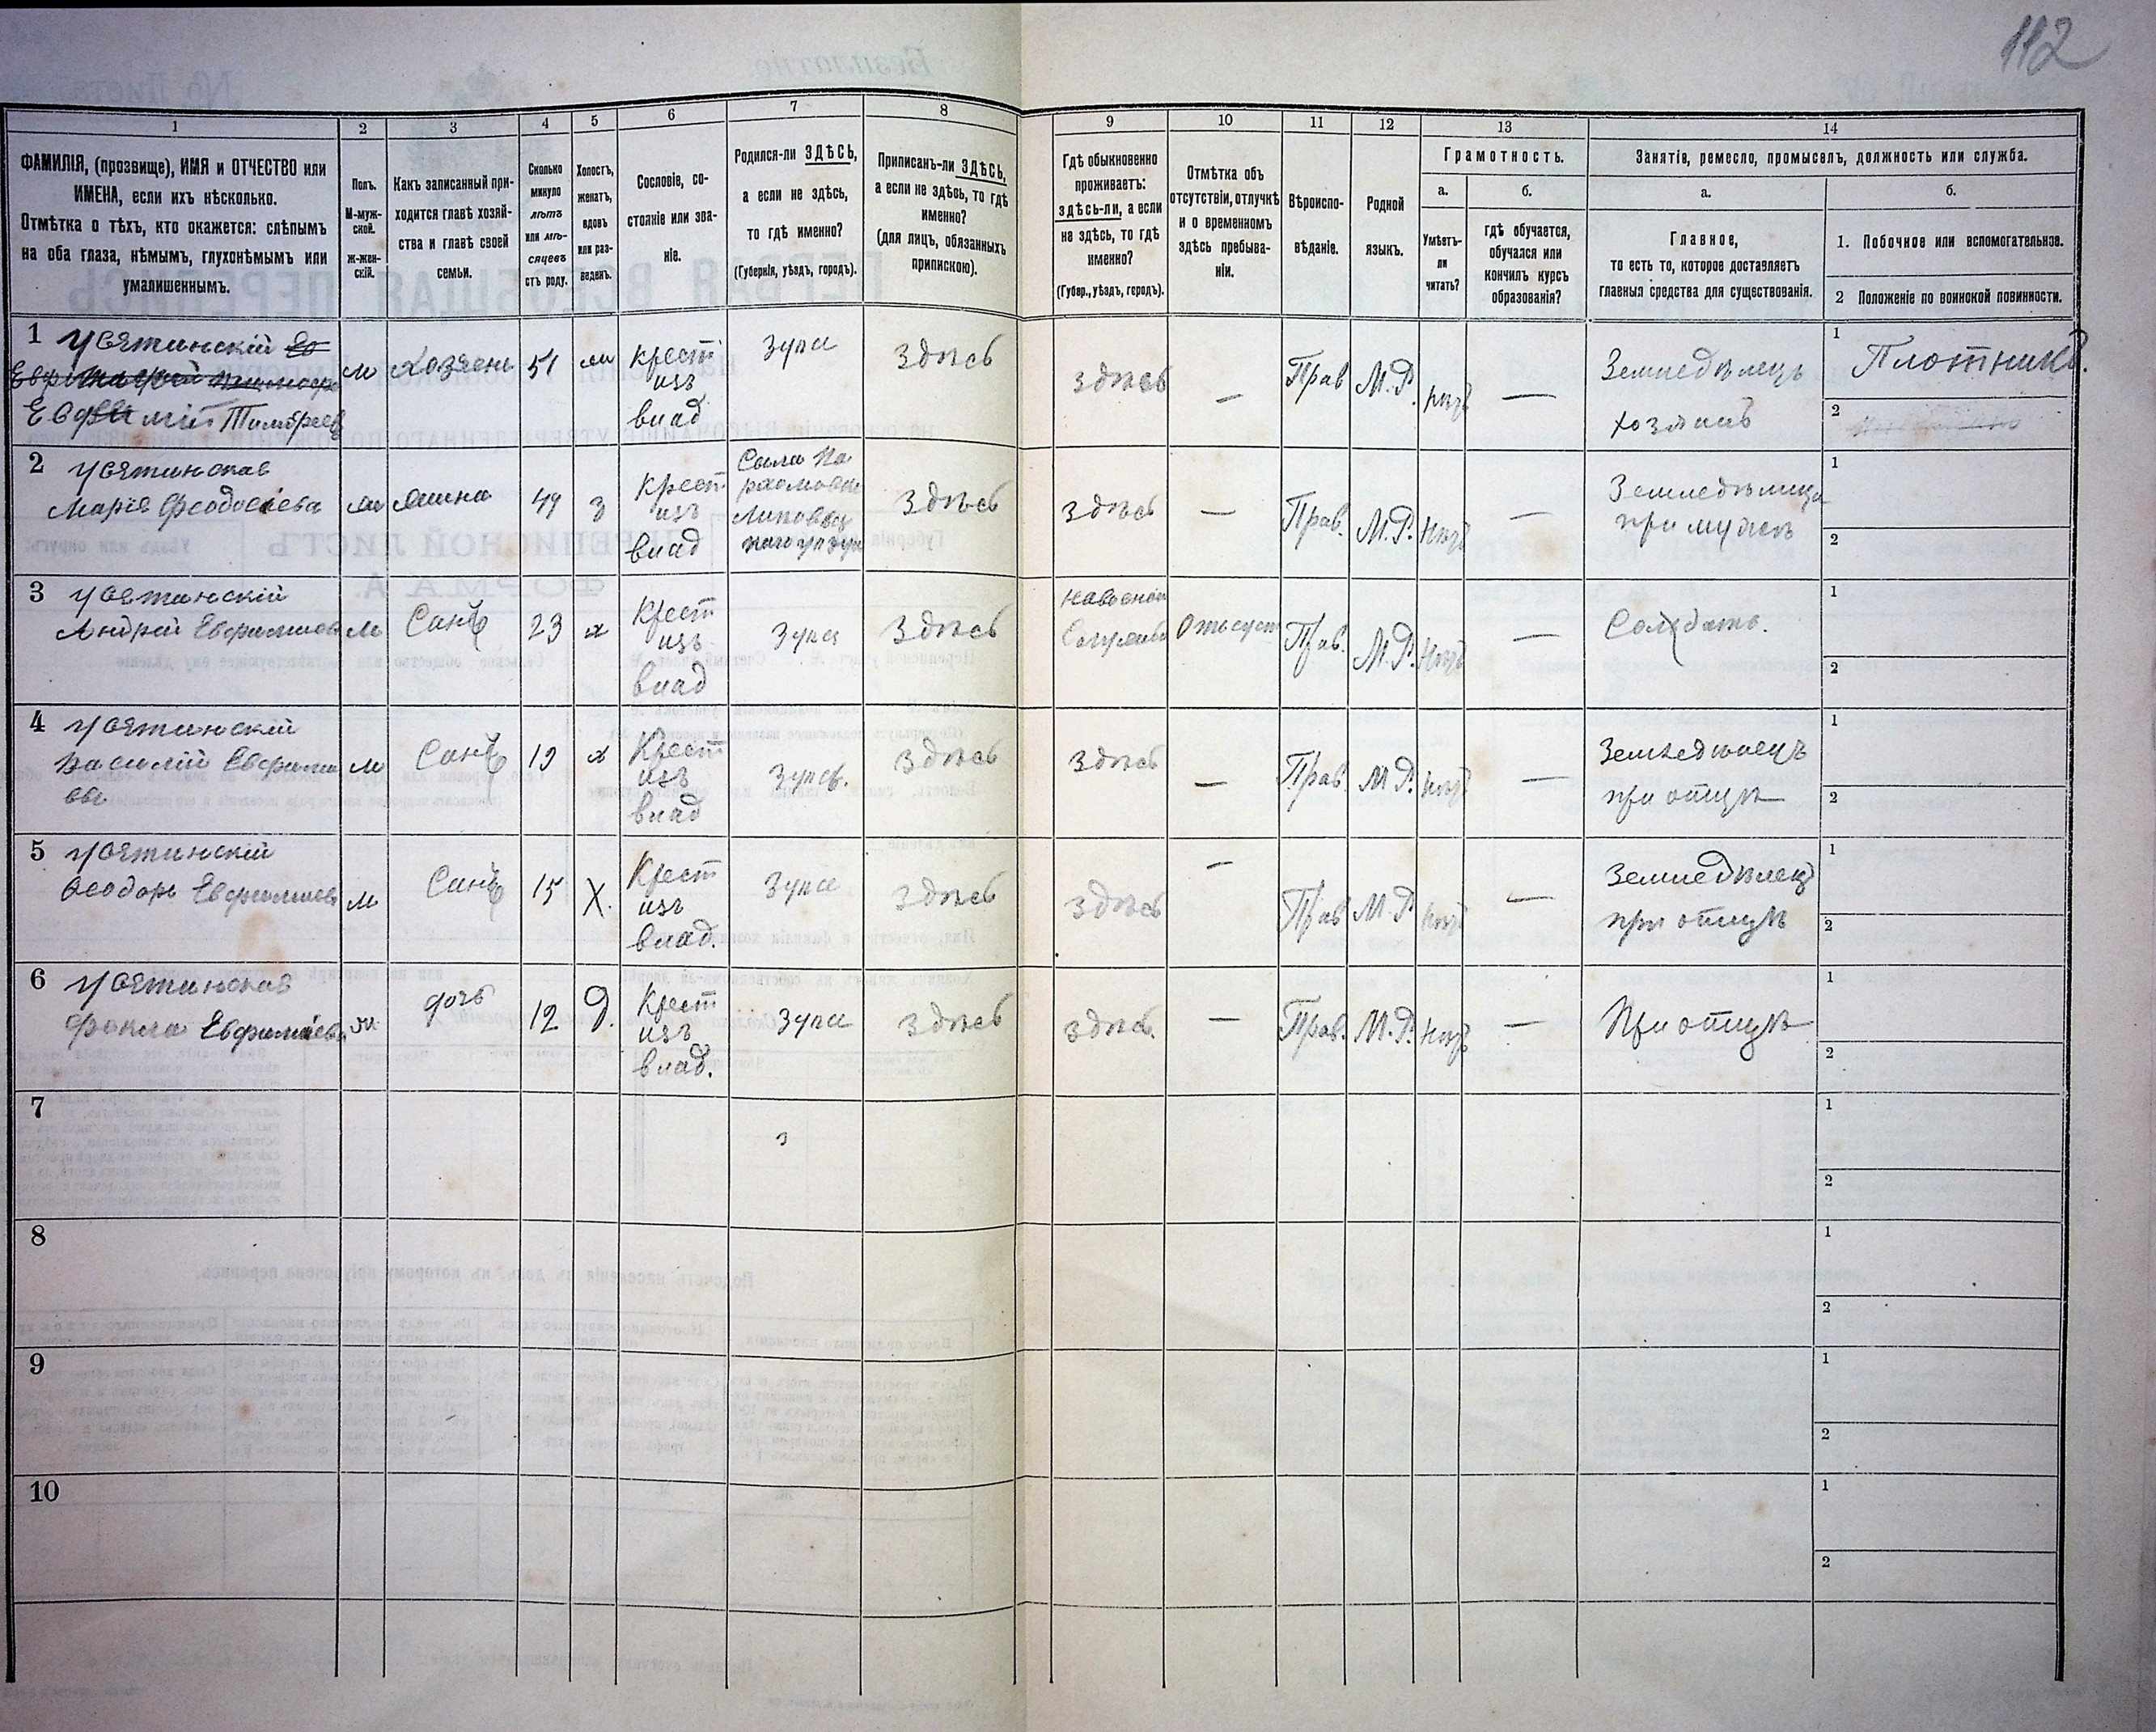 112
1
2
3
4
5
6
7
8
9
10
11
12
13
14
ФАМИЛІЯ, (прозвище), ИМЯ и ОТЧЕСТВО или
ИМЕНА, если ихъ нѣсколько.
Отмѣтка о тѣхъ, кто окажется: слѣпымъ
на оба глаза, нѣмымъ, глухонѣмымъ или
умалишеннымъ.
Полъ.
М-муж-
ской.
Ж-жен-
скій.
Какъ записанный при-
ходится главѣ хозяй-
ства и главѣ своей
семьи.
Сколько
минуло
лѣтъ
или мѣ-
сяцевъ
отъ роду.
Холостъ,
женатъ,
вдовъ
или раз-
веденъ.
Сословіе, со-
стояніе или зва-
ніе.
Родился-ли ЗДѢСЬ,
а если не здѣсь,
то гдѣ именно?
(Губернія, уѣздъ, городъ).
Приписанъ-ли ЗДѢСЬ,
а если не здѣсь, то гдѣ
именно?
(для лицъ, обязанныхъ
припискою).
Гдѣ обыкновенно
проживаетъ:
здѣсь-ли, а если
не здѣсь, то гдѣ
именно?
(Губер., уѣздъ, городъ).
Отмѣтка объ
отсутствіи, отлучкѣ
и о временномъ
здѣсь пребыва-
ніи.
Вѣроиспо-
вѣданіе.
Родной
языкъ.
Грамотность.
а.
Умѣетъ-
ли
читать?
б.
гдѣ обучается,
обучался или
кончилъ курсъ
образованія?
Занятіе, ремесло, промыселъ, должность или служба.
а.
Главное,
то есть то, которое доставляетъ
главныя средства для существованія.
б.
1. Побочное или вспомогательное.
2 Положеніе по воинской повинности.
1 Усятинскій
Евфимій Тимофеев
м
Хозяенъ
51
крест
изъ
влад
Здѣсь
здѣсь
—
Прав
М.Р.
нѣтъ
—
Земледѣлецъ
хозяинъ
1
Плотникъ.
2
2 Усятинская
Марія Феодосіева
жина
49
з
Крест
изъ
влад
здѣсь
здѣсь
—
Прав.
М.Р.
нѣтъ
—
Земледѣлица
при мужѣ
1
2
3 Усятинскій
Андрей Евфиміев
м
Синъ
23
х
Крест
изъ
влад
Здѣсь
Отсуст
Прав.
М.Р.
нѣтъ
—
Солдатъ.
1
2
4 Усятинскій
Василій Евфими
евъ
м
Синъ
19
х
Крест
изъ
влад
здѣсь
здѣсь
—
Прав.
М.Р.
нѣтъ
—
Земледѣлецъ
при отцѣ
1
2
5 Усятинскій
Феодоръ Евфиміев
м
Синъ
15
Х.
Крест
изъ
влад.
здѣсь
здѣсь
—
Прав
М.Р.
нѣтъ
—
Земледѣлец
при отцѣ
1
2
6 Усятинская
Фекла Евфиміева
ж
дочь
12
Д.
Крест
изъ
влад.
здѣсь
здѣсь.
—
Прав.
М.Р.
нѣтъ
—
При отцѣ
1
2
7
1
2
8
1
2
9
1
2
10
1
2